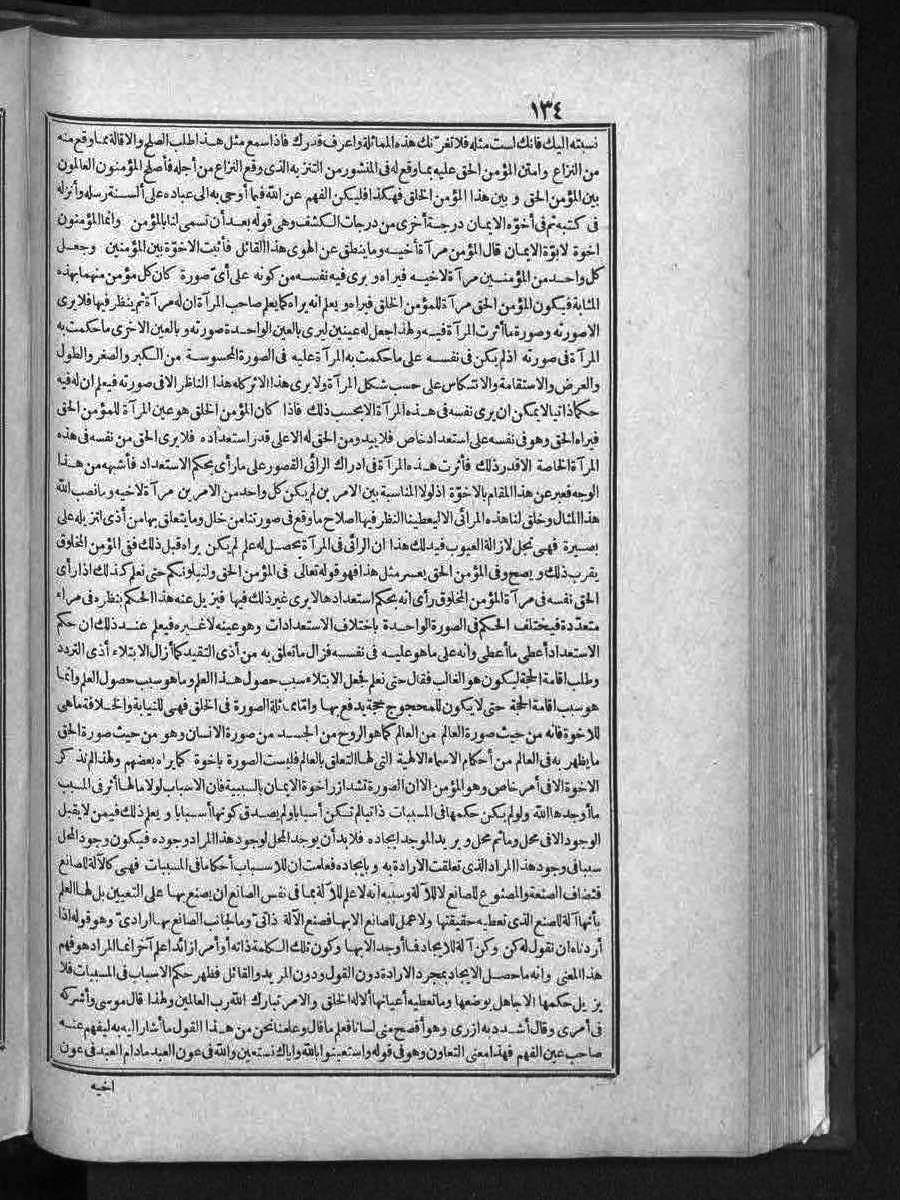 ١٣٤
نسبته اليك فانك لست مثله فلا تغرّنك هذه المماثلة واعرف قدرك فاذا سمع مثل هذا طلب الصلح والاقالة مما وقع منه
من النزاع وامتن المؤمن الحق عليه بما وقع له فى المنشور من التنزيه الذى وقع النزاع من أجله فأصلح المؤمنون العالمون
بين المؤمن الحق و بين هذا المؤمن الخلق فهكذا فليكن الفهم عن الله فيما أوحى به الى عباده على ألسنة رسله وأنزله
فى كتبه ثم فى أخوّة الايمان درجة أخرى من درجات الكشف وهى قوله بعد أن تسمى لنا بالمؤمن وانما المؤمنون
اخوة لابوّة الايمان قال المؤمن مرآة أخيه وما ينطق عن الهوى هذا القائل فأثبت الاخوّة بين المؤمنين وجعل
كل واحد من المؤمنين مرآة لاخيه فيراه و يرى فيه نفسه من كونه على أىّ صورة كان كل مؤمن منهما بهذه
المثابة فيكون المؤمن الحق مرآة للمؤمن الخلق فيراه و يعلم انه يراه كما يعلم صاحب المرآة ان له مرآة ثم ينظر فيها فلا يرى
الاصورته وصورة ما أثرت المرآة فيه ولهذا جعل له عينين ليرى بالعين الواحدة صورته و بالعين الاخرى ما حكمت به
المرآة فى صورته اذ لم يكن فى نفسه على ما حكمت به المرآة عليه فى الصورة المحسوسة من الكبر والصغر والطول
والعرض والاستقامة والانتكاس على حسب شكل المرآة ولا يرى هذا الاثر كله هذا الناظر الا فى صورته فيعلم ان له فيه
حكما ذاتيا لا يمكن ان يرى نفسه فى هذه المرآة الا بحسب ذلك فاذا كان المؤمن الخلق هو عين المرآة للمؤمن الحق
فيراه الحق وهو فى نفسه على استعداد خاص فلا يبدو من الحق له الا على قدر استعداده فلا يرى الحق من نفسه فى هذه
المرآة الخاصة الا قدر ذلك فأثرت هذه المرآة فى ادراك الرائى القصور على ما رأى بحكم الاستعداد فأشبه من هذا
الوجه فعبر عن هذا المقام بالاخوّة اذ لولا المناسبة بين الامرين لم يكن كل واحد من الامرين مرآة لاخيه وما نصب الله
هذا المثال وخلق لنا هذه المرائى الا ليعطينا النظر فيها اصلاح ما وقع فى صورتنا من خلل وما يتعلق بها من أذى لنزيله على
بصيرة فهى تجل لازالة العيوب فيدلك هذا ان الرائى فى المرآة يحصل له علم لم يكن يراه قبل ذلك ففى المؤمن المخلوق
يقرب ذلك و يصح وفى المؤمن الحق يعسر مثل هذا فهو قوله تعالى فى المؤمن الحق ولنبلونكم حتى نعلم كذلك اذا رأى
الحق نفسه فى مرآة المؤمن المخلوق رأى انه بحكم استعدادها لا يرى غير ذلك فيها فيزيل عنه هذا الحكم بنظره فى مراء
متعدّدة فيختلف الحكم فى الصورة الواحدة باختلاف الاستعدادات وهو عينه لا غيره فيعلم عند ذلك ان حكم
الاستعداد أعطى ما أعطى وانه على ما هو عليه فى نفسه فزال ما تعلق به من أذى التقيد كما أزال الابتلاء أذى التردد
وطلب اقامة الحجة ليكون هو الغالب فقال حتى نعلم فجعل الابتلاء سبب حصول هذا العلم وما هو سبب حصول العلم وانما
هو سبب اقامة الحجة حتى لا يكون للمحجوج حجة يدفع بها وامّا مماثلة الصورة فى الخلق فهى للنيابة والخلافة ما هى
للاخوة فانه من حيث صورة العالم من العالم كما هو الروح من الجسد من صورة الانسان وهو من حيث صورة الحق
ما يظهر به فى العالم من أحكام الاسماء الالهية التى لها التعلق بالعالم فليست الصورة باخوة كما يراه بعضهم ولهذا لم نذكر
الاخوة الا فى أمر خاص وهو المؤمن الا ان الصورة تشدّ ازر اخوة الايمان بالسببية فان الاسباب لولا ما لها أثر فى المسبب
ما أوجدها الله ولو لم يكن حكمها فى المسببات ذاتيا لم تكن أسبابا ولم يصدق كونها أسبابا و يعلم ذلك فيمن لا يقبل
الوجود الا فى محل وما ثم محل و يريد الموجد ايجاده فلا بد أن يوجد المحل لوجود هذا المراد وجوده فيكون وجود المحل
سببا فى وجود هذا المراد الذى تعلقت الارادة به و بايجاده فعلمت ان للاسباب أحكاما فى المسببات فهى كالآلة للصانع
فتضاف الصنعة والمصنوع للصانع لا للآلة وسببه انه لا علم للآلة بما فى نفس الصانع ان يصنع بها على التعيين بل لها العلم
بأنها آلة للصنع الذى تعطيه حقيقتها ولا عمل للصانع الا بها فصنع الآلة ذاتىّ وما لجانب الصانع بها ارادىّ وهو قوله اذا
أردناه ان نقول له كن وكن آلة للايجاد فما أوجد الا بها وكون تلك الكلمة ذاته أو أمر ازائدا علم آخر انما المراد هو فهم
هذا المعنى وانه ما حصل الايجاد بمجرد الارادة دون القول ودون المريد والقائل فظهر حكم الاسباب فى المسببات فلا
يزيل حكمها الا جاهل بوضعها وما تعطيه أعيانها ألا له الخلق والامر تبارك الله رب العالمين ولهذا قال موسى وأشركه
فى أمرى وقال أشدد به ازرى وهو أفصح منى لسانا فعلم ما قال وعلمنا نحن من هذا القول ما أشار اليه به ليفهم عنه
صاحب عين الفهم فهذا معنى التعاون وهو فى قوله واستعينوا بالله واياك نستعين والله فى عون العبد مادام العبد فى عون
اخيه